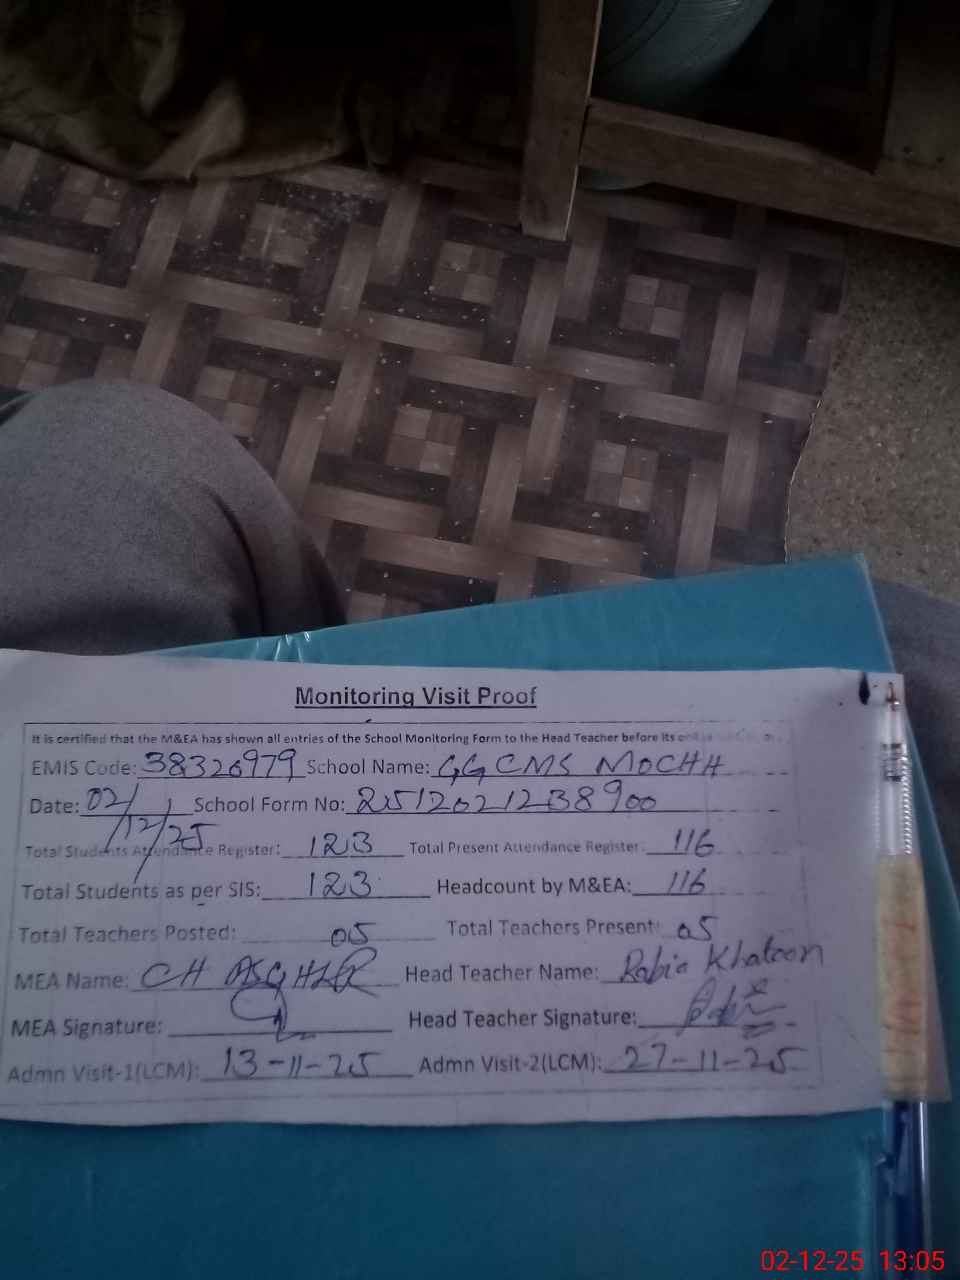 Monitoring Visit Proof
It is certified that the M&EA has shown all entries of the School Monitoring Form to the Head Teacher before its
EMIS Code: 38320979 School Name: GGCMS MOCHH
Date: 02/12/25 School Form No: 2512021238900
Total Students Attendance Register: 123 Total Present Attendance Register: 116
Total Students as per SIS: 123 Headcount by M&EA: 116
Total Teachers Posted: 05 Total Teachers Present: 05
MEA Name: CH ASGHAR Head Teacher Name: Rabia Khatoon
MEA Signature: Head Teacher Signature:
Admn Visit-1(LCM): 13-11-25 Admn Visit-2(LCM): 27-11-25
02-12-25 13:05